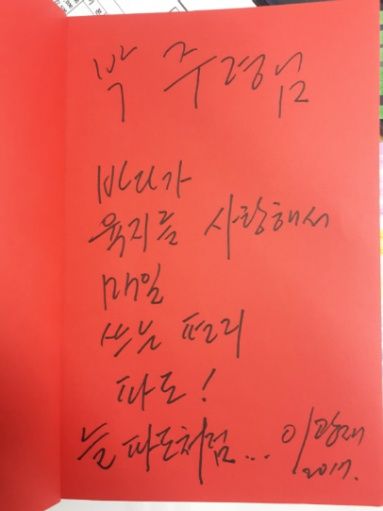 박 주령님
바다가
육지를 사랑해서
매일
쓰는 편지
파도!
늘 파도처럼... 이광재
2017.